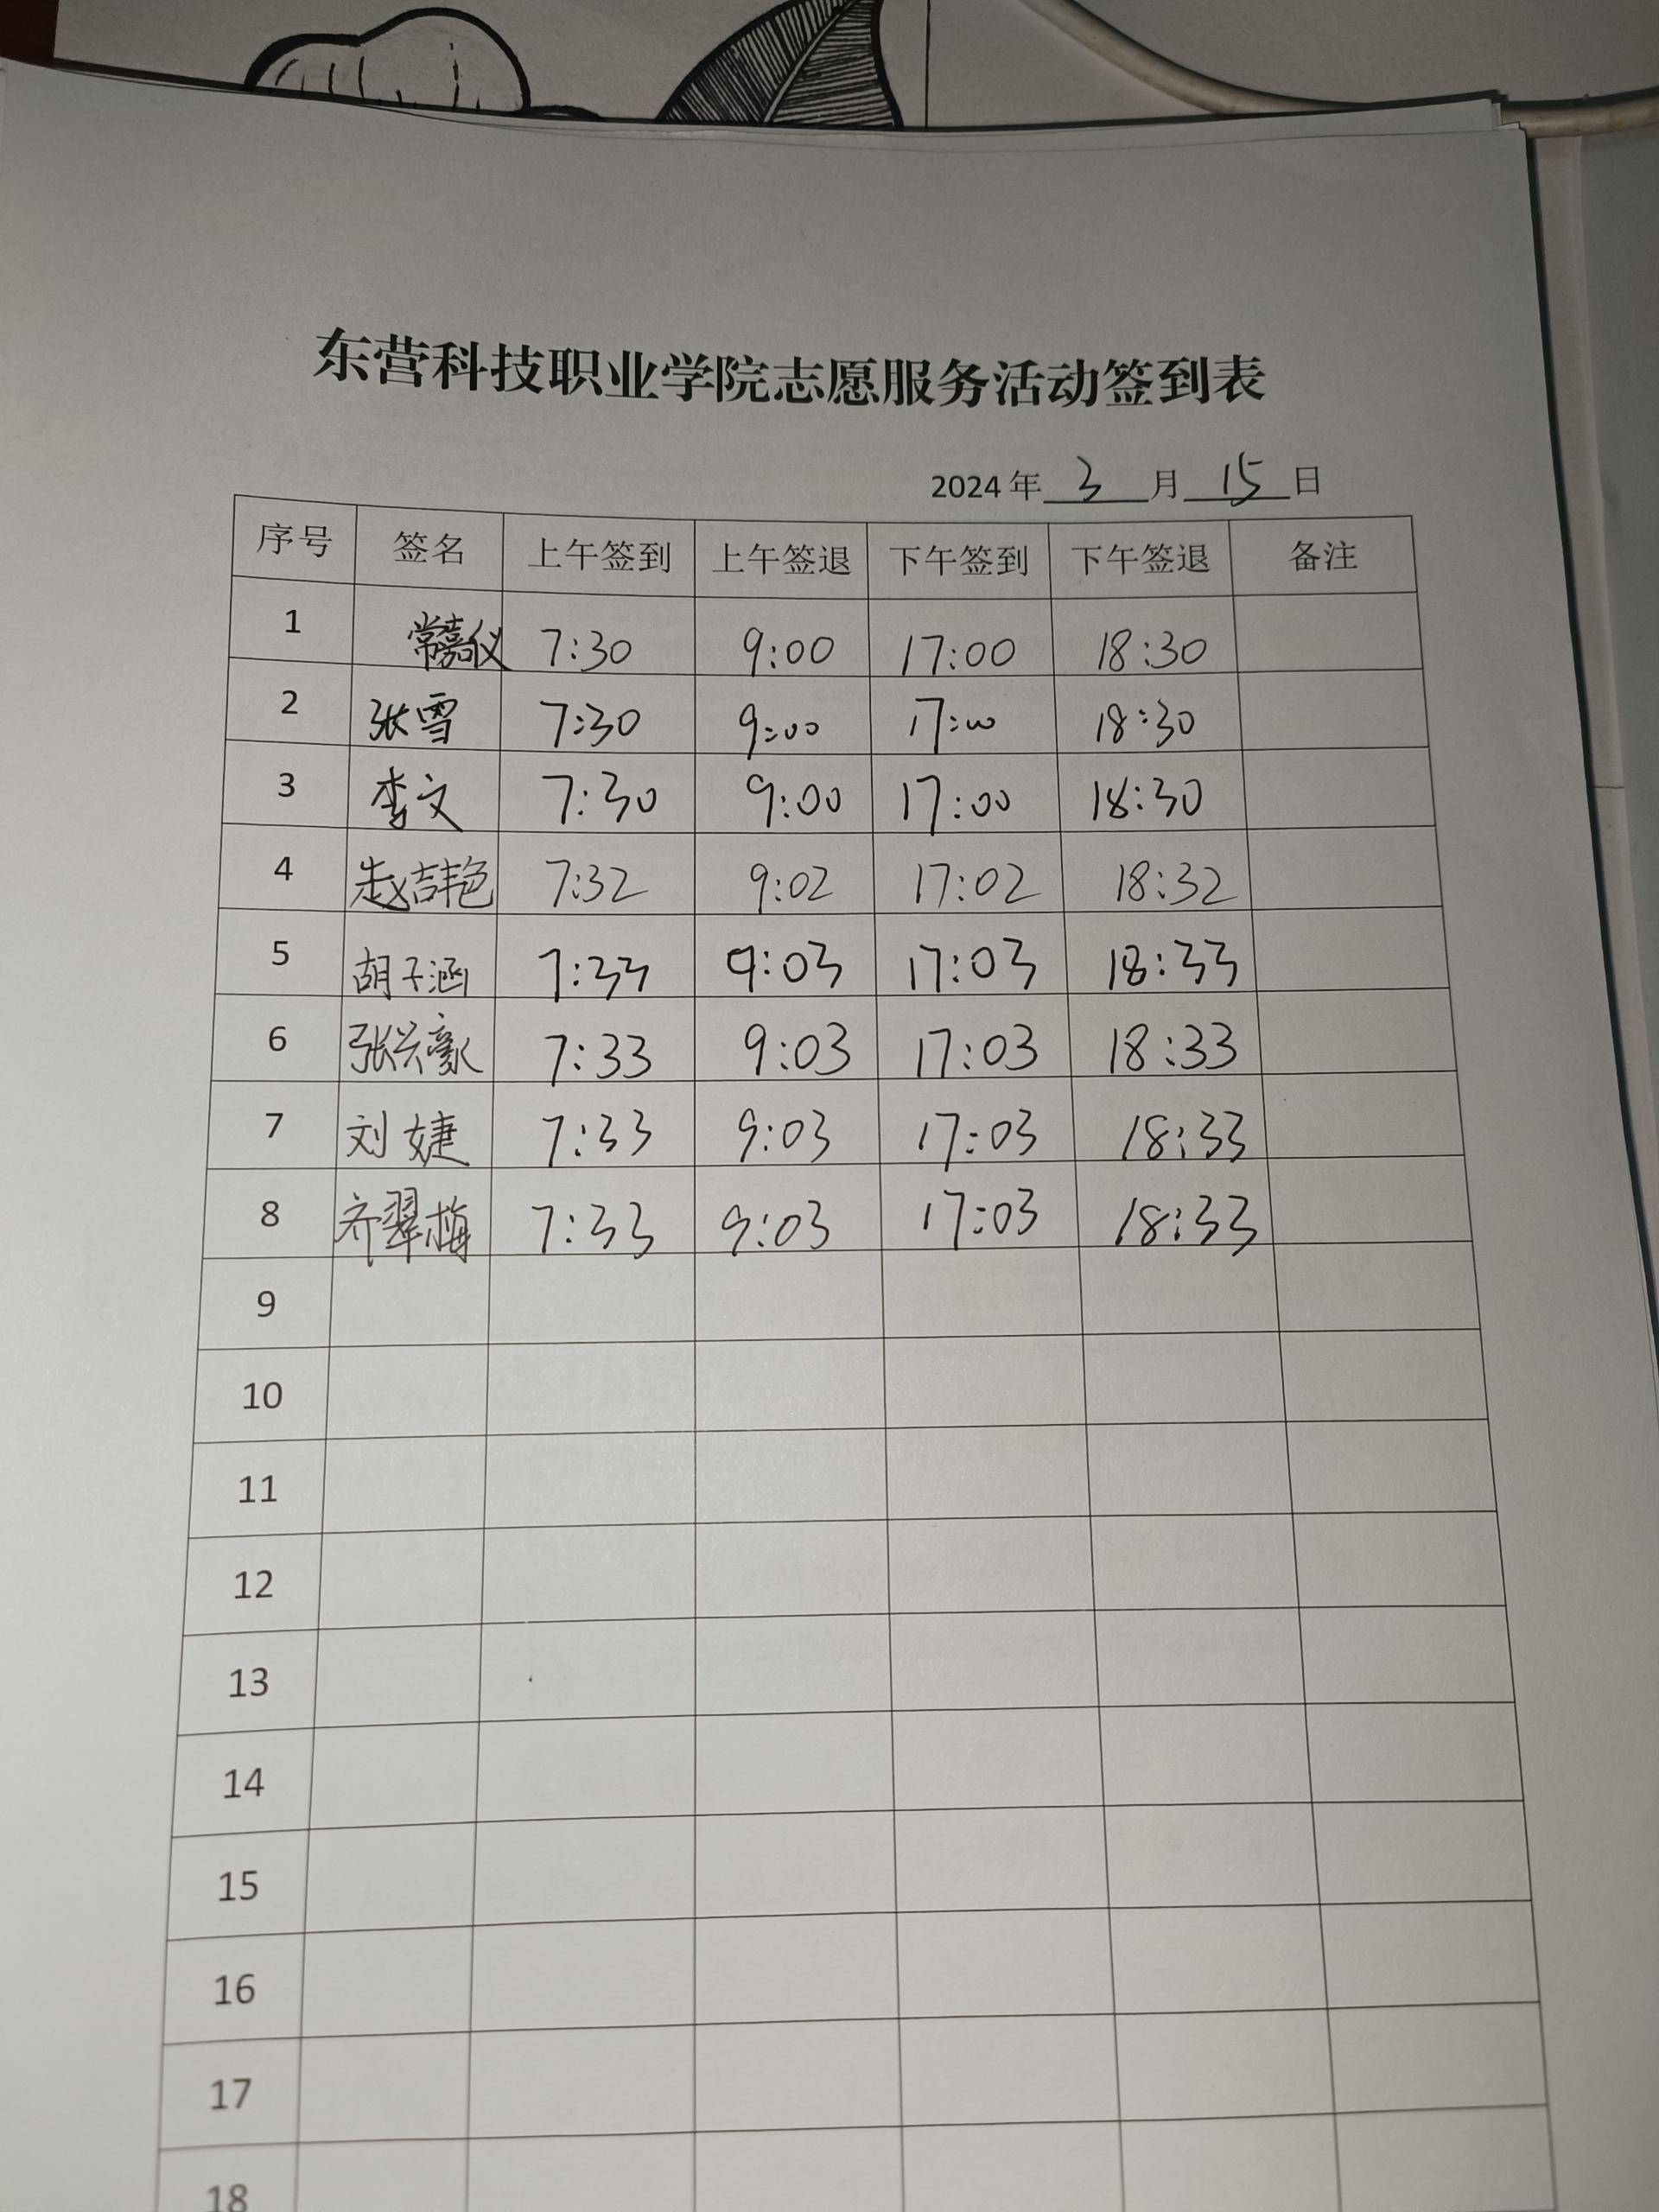 东营科技职业学院志愿服务活动签到表
2024年 3 月 15 日
序号 签名 上午签到 上午签退 下午签到 下午签退 备注
1 常嘉仪 7:30 9:00 17:00 18:30
2 张雪 7:30 9:00 17:00 18:30
3 李文 7:30 9:00 17:00 18:30
4 赵吉艳 7:32 9:02 17:02 18:32
5 胡子涵 7:33 9:03 17:03 18:33
6 张兴豪 7:33 9:03 17:03 18:33
7 刘婕 7:33 9:03 17:03 18:33
8 齐翠梅 7:33 9:03 17:03 18:33
9
10
11
12
13
14
15
16
17
18